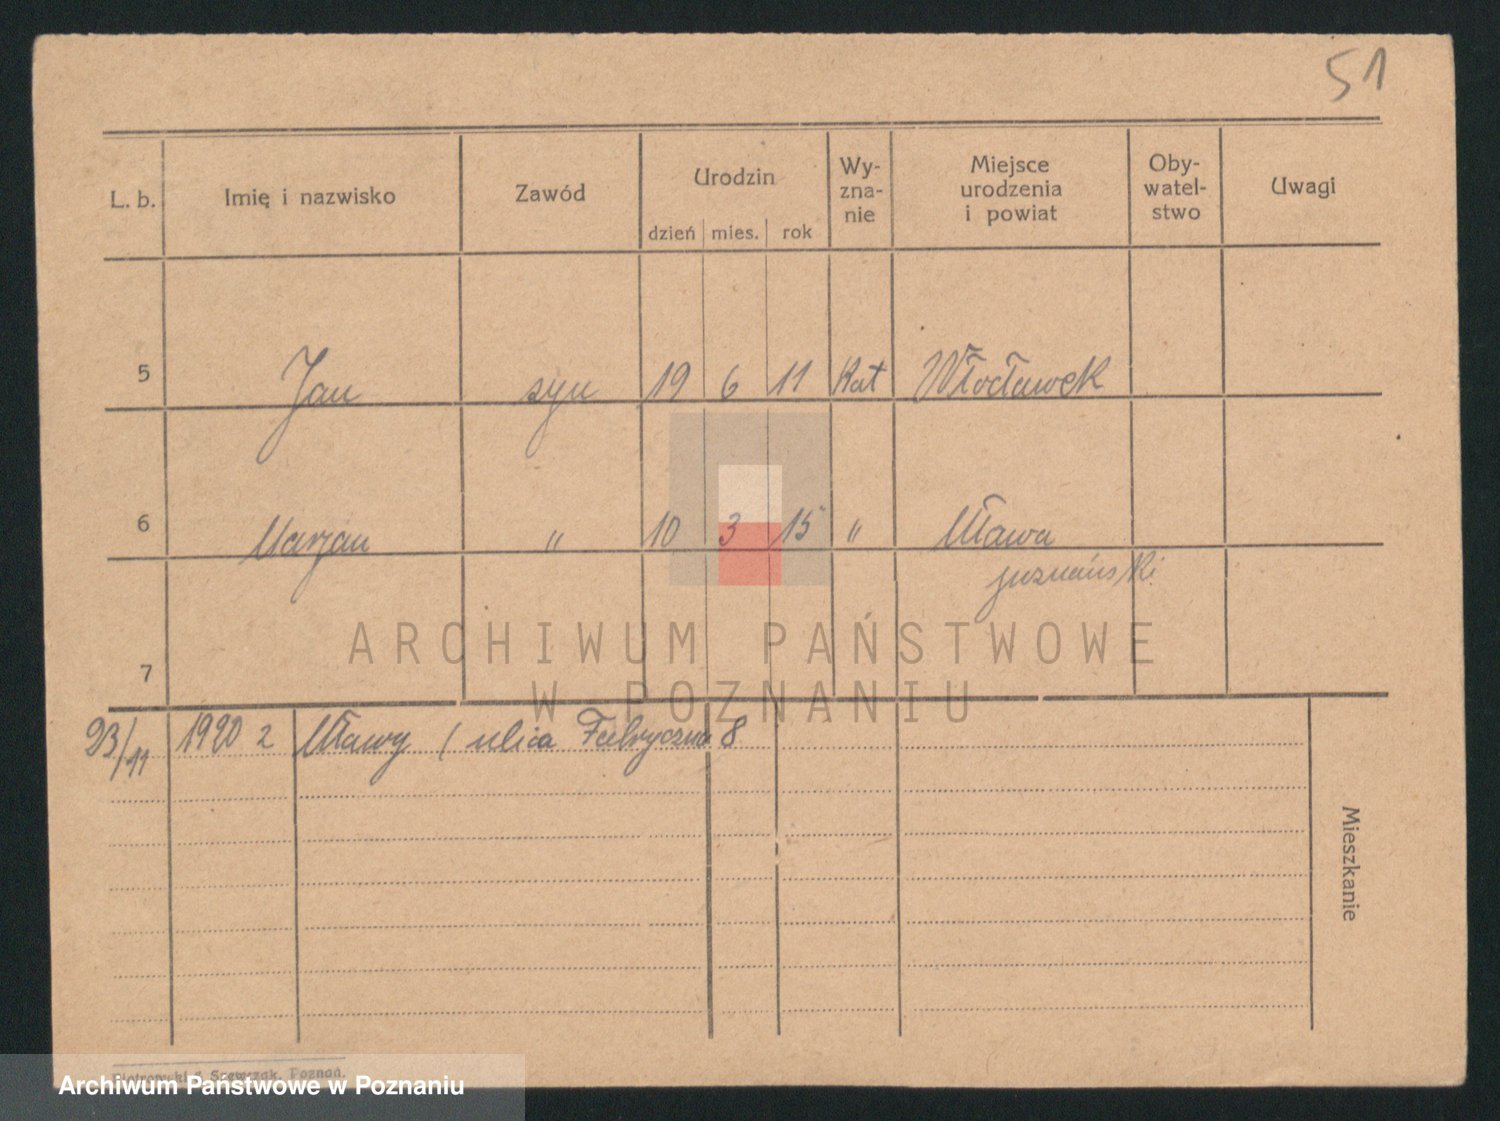 51
L. b. Imię i nazwisko Zawód Urodzin dzień mies. rok Wy-zna-nie Miejsce urodzenia i powiat Oby-watel-stwo Uwagi
5 Jan syn 19 6 11 Kat Włocławek
6 Marjan " 10 3 15 " Mława
poznański
ARCHIWUM PAŃSTWOWE
W POZNANIU
7
23/11 1920 z Mławy ( ulica Fabryczna 8
Mieszkanie
Poznań.
Archiwum Państwowe w Poznaniu